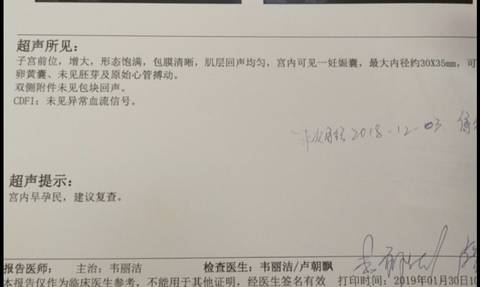 超声所见：
子宫前位，增大，形态饱满，包膜清晰，肌层回声均匀，宫内可见一妊娠囊，最大内径约30X35mm，可
卵黄囊、未见胚芽及原始心管搏动。
双侧附件未见包块回声。
CDFI：未见异常血流信号。
2018-12-03
超声提示：
宫内早孕民，建议复查。
报告医师： 主治：韦丽洁 检查医生：韦丽洁/卢朝飘
本报告仅作为临床医生参考，不能用于其他证明，经医生签名有效 打印时间：2019年01月30日10